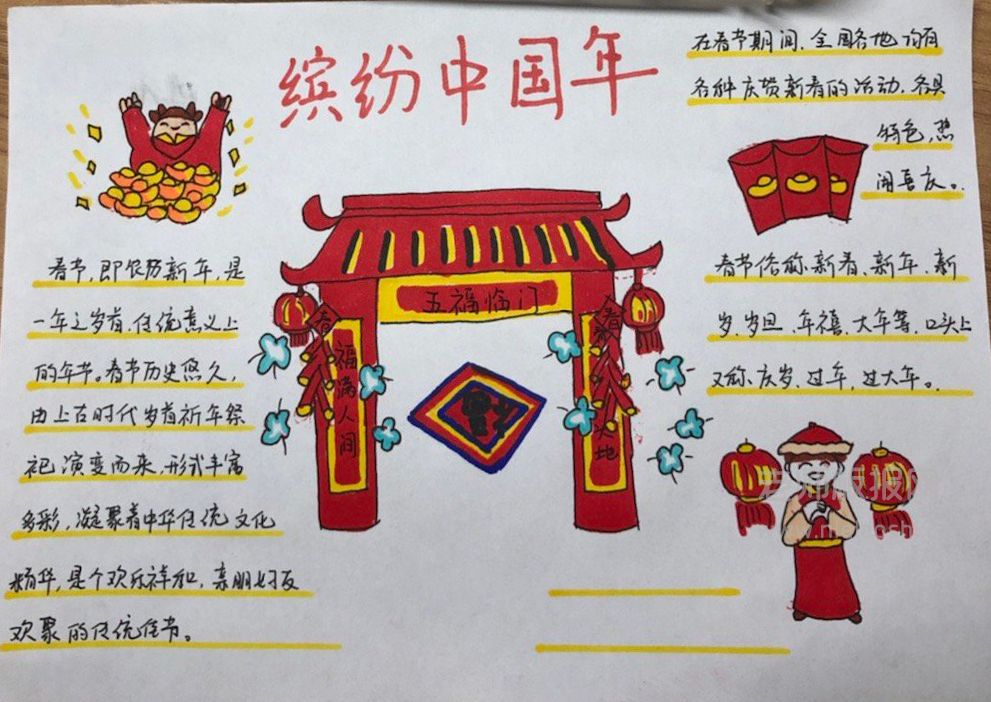 缤纷中国年
春节,即农历新年,是
一年之岁首,传统意义上
的年节。春节历史悠久,
由上古时代岁首祈年祭
祀演变而来,形式丰富
多彩,凝聚着中华传统文化
精华,是个欢乐祥和,亲朋好友
欢聚的传统佳节。
五福临门
春
福满人间
春
大地
在春节期间,全国各地均有
各种庆贺新春的活动,各具
特色,热
闹喜庆。
春节俗称新春、新年、新
岁、岁旦、年禧、大年等,口头上
又称庆岁,过年,过大年。
老师版报网